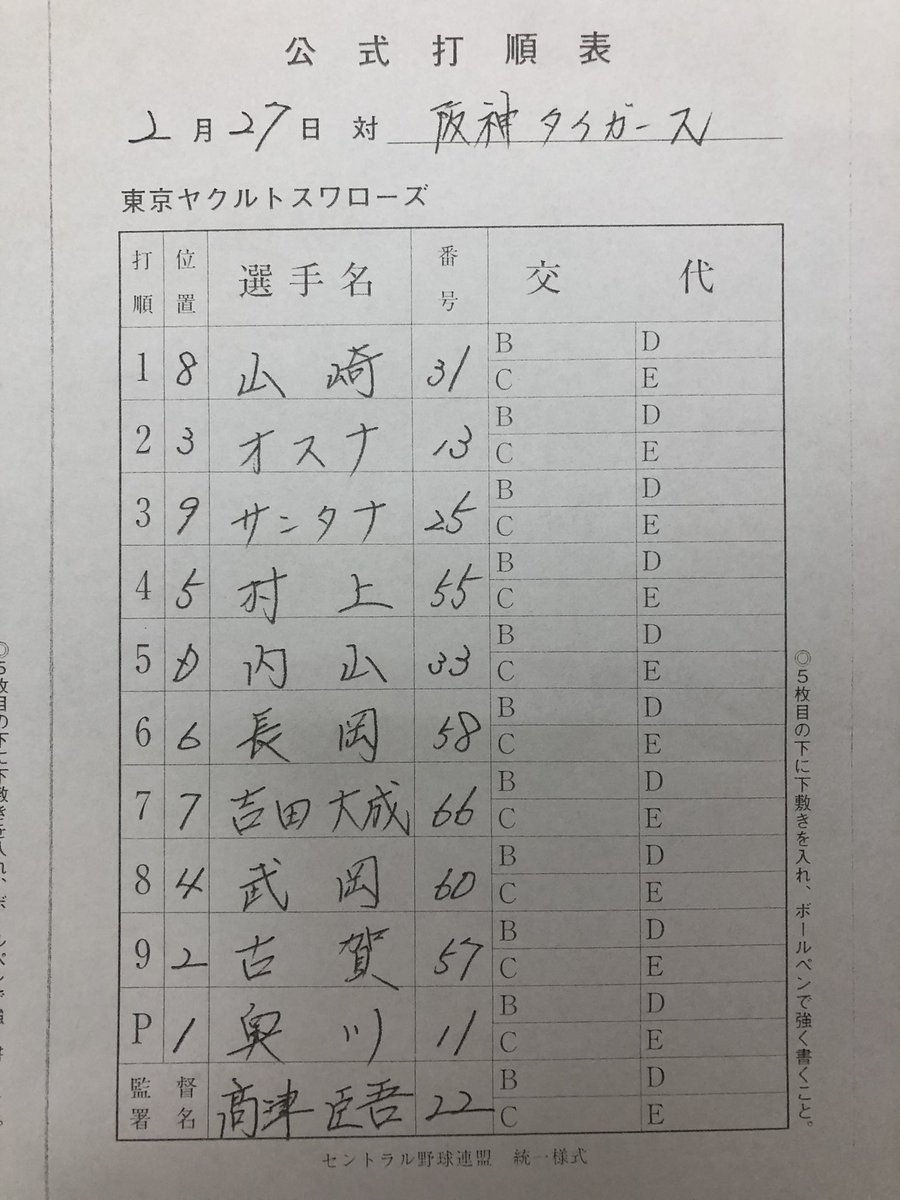 公式打順表
2月27日 対 阪神タイガース
東京ヤクルトスワローズ
打順 位置 選手名 番号 交代
1 8 山崎 31 B D C E
2 3 オスナ 13 B D C E
3 9 サンタナ 25 B D C E
4 5 村上 55 B D C E
5 D 内山 33 B D C E
6 6 長岡 58 B D C E
7 7 吉田大成 66 B D C E
8 4 武岡 60 B D C E
9 2 古賀 57 B D C E
P 1 奥川 11 B D C E
監督署名 高津臣吾 22 B D C E
セントラル野球連盟 統一様式
◎5枚目の下に下敷きを入れ、ボールペンで強く書くこと。